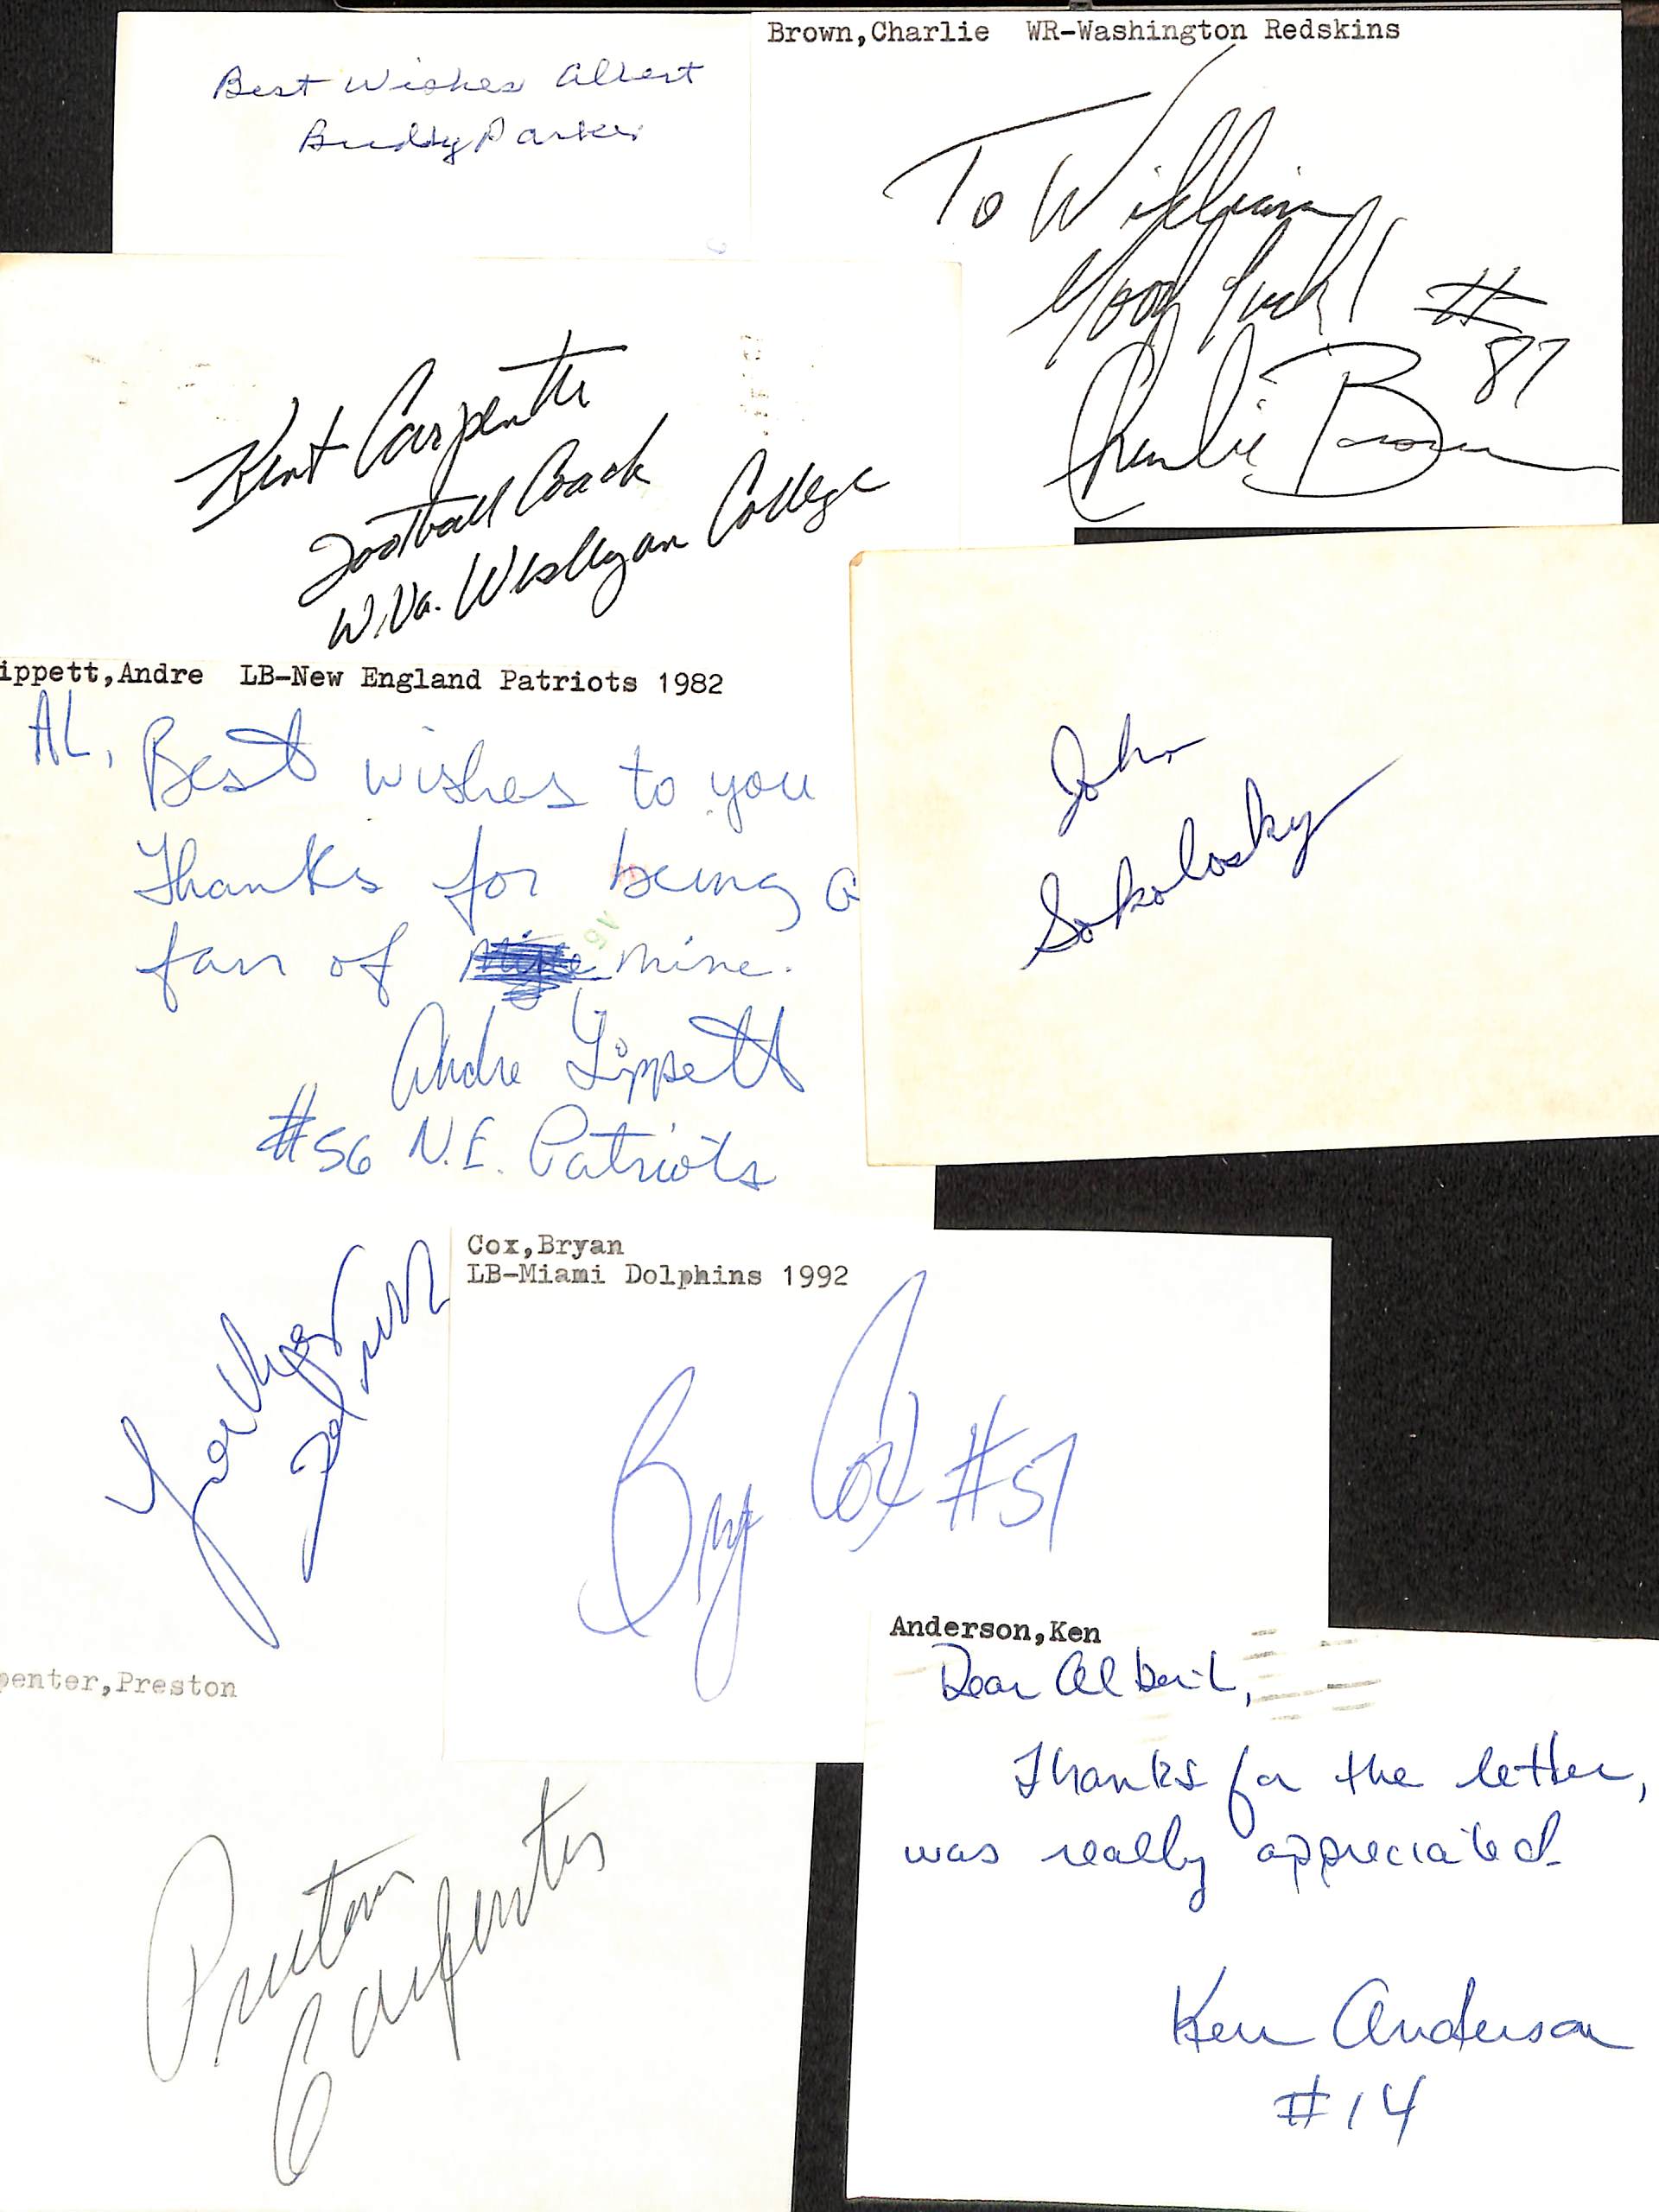 Best Wishes Albert
Buddy Parker
Brown,Charlie WR-Washington Redskins
To William
Good luck!
#
87
Charlie Brown
Kent Carpenter
Football Coach
W.Va. Wesleyan College
ippett,Andre LB-New England Patriots 1982
AL, Best wishes to you
Thanks for being a
fan of mine mine.
Andre Tippett
#56 N.E. Patriots
John
Sokolosky
Cox,Bryan
LB-Miami Dolphins 1992
Bry Cox #51
penter,Preston
Preston
Carpenter
Anderson,Ken
Dear Albert,
Thanks for the letter,
was really appreciated
Ken Anderson
#14